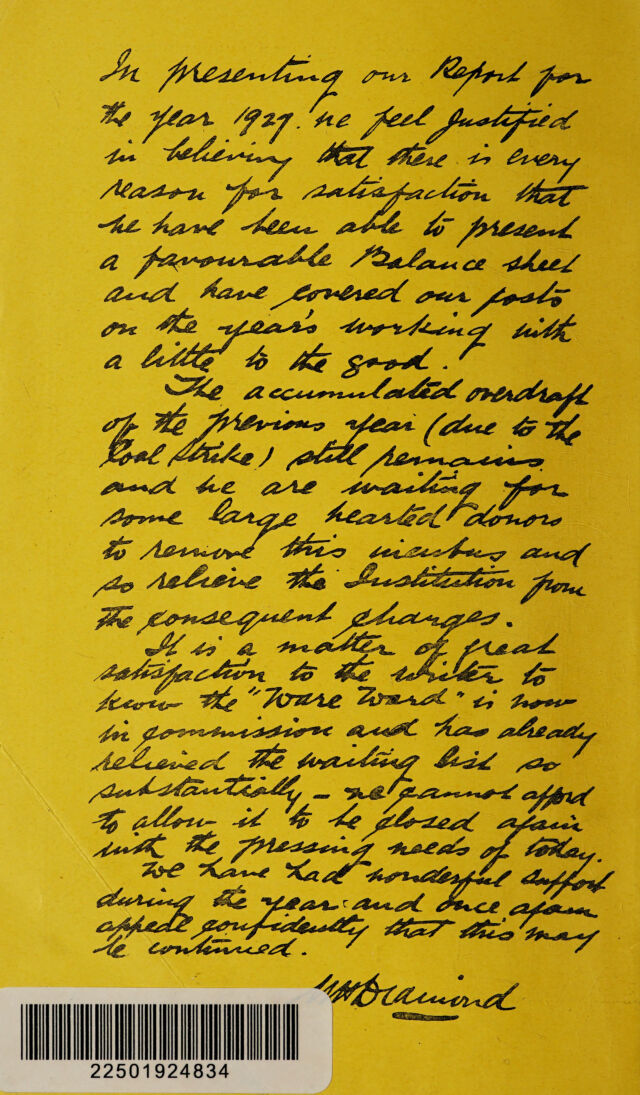 In presenting our Report for
the year 1927. we feel Justified
in believing that there is every
reason for satisfaction that
we have been able to present
a favourable Balance sheet
and have covered our costs
on the year's working with
a little to the good.
The accumulated overdraft
of the previous year (due to the
Coal Strike) still remains
and we are waiting for
some large hearted donors
to remove this incubus and
so relieve the Institution from
the consequent charges.
It is a matter of great
satisfaction to the writer to
know the "Ware Ward" is now
in commission and has already
relieved the waiting list so
substantially – we cannot afford
to allow it to be closed again
with the pressing needs of today.
We have had wonderful support
during the year and once again
appeal confidently that this may
be continued.
WH Diamond
22501924834